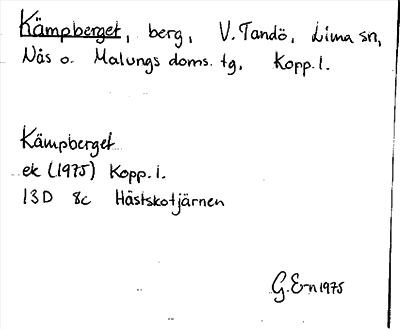 Kämpberget, berg, V. Tandö, Lima sn,
Nås o. Malungs doms. tg, Kopp. l.
Kämpberget
ek (1975) Kopp. l.
13D 8c Hästskotjärnen
G. E-n 1975